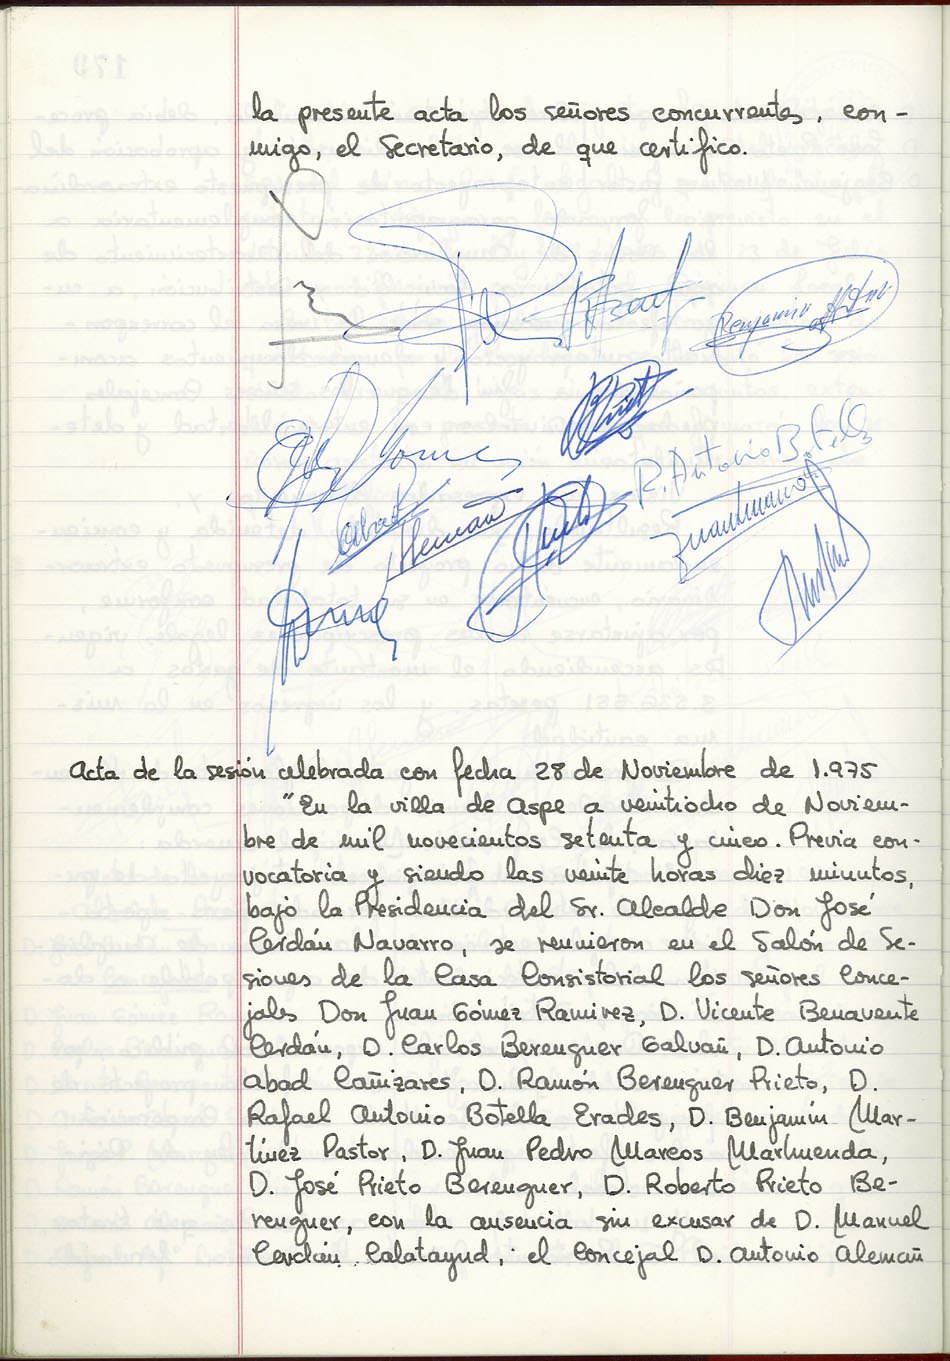 la presente acta los señores concurrentes, con-
migo, el Secretario, de que certifico.
Benjamin
R. Antonio Botella
Alemañ
Acta de la sesión celebrada con fecha 28 de Noviembre de 1.975
"En la villa de Aspe a veintiocho de Noviem-
bre de mil novecientos setenta y cinco. Previa con-
vocatoria y siendo las veinte horas diez minutos,
bajo la Presidencia del Sr. Alcalde Don José
Cerdán Navarro, se reunieron en el Salón de Se-
siones de la Casa Consistorial los señores Conce-
jales Don Juan Gómez Ramirez, D. Vicente Benavente
Cerdán, D. Carlos Berenguer Galvañ, D. Antonio
Abad Cañizares, D. Ramón Berenguer Prieto, D.
Rafael Antonio Botella Erades, D. Benjamín Mar-
tínez Pastor, D. Juan Pedro Marcos Marhuenda,
D. José Prieto Berenguer, D. Roberto Prieto Be-
renguer, con la ausencia sin excusar de D. Manuel
Cerdán Calatayud; el Concejal D. Antonio Alemañ